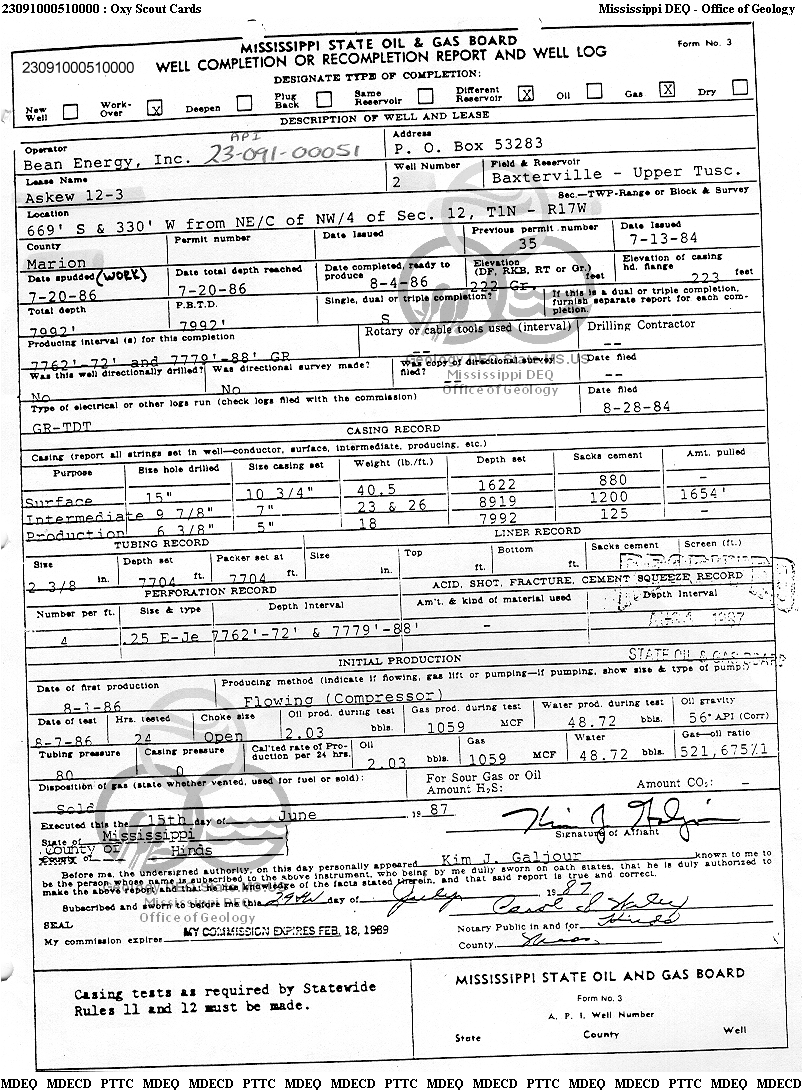 23091000510000 : Oxy Scout Cards Mississippi DEQ - Office of Geology
MISSISSIPPI STATE OIL & GAS BOARD Form No. 3
23091000510000 WELL COMPLETION OR RECOMPLETION REPORT AND WELL LOG
DESIGNATE TYPE OF COMPLETION:
New Well Work-Over X Deepen Plug Back Same Reservoir Different Reservoir X Oil Gas X Dry
DESCRIPTION OF WELL AND LEASE
Operator API Address
Bean Energy, Inc. 23-091-00051 P. O. Box 53283
Lease Name Well Number Field & Reservoir
Askew 12-3 2 Baxterville - Upper Tusc.
Location Sec.—TWP-Range or Block & Survey
669' S & 330' W from NE/C of NW/4 of Sec. 12, T1N - R17W
County Permit number Date Issued Previous permit number Date Issued
Marion 35 7-13-84
Date spudded (WORK) Date total depth reached Date completed, ready to produce Elevation (DF, RKB, RT or Gr.) feet Elevation of casing hd. flange feet
7-20-86 7-20-86 8-4-86 222 Gr. 223
Total depth P.B.T.D. Single, dual or triple completion? If this is a dual or triple completion, furnish separate report for each completion.
7992' 7992' S
Producing interval (s) for this completion Rotary or cable tools used (interval) Drilling Contractor
7762'-72' and 7779'-88' GR -- --
Was this well directionally drilled? Was directional survey made? Was copy of directional survey filed? Date filed
No No -- --
Type of electrical or other logs run (check logs filed with the commission) Date filed
GR-TDT 8-28-84
CASING RECORD
Casing (report all strings set in well—conductor, surface, intermediate, producing, etc.)
Purpose Size hole drilled Size casing set Weight (lb./ft.) Depth set Sacks cement Amt. pulled
Surface 15" 10 3/4" 40.5 1622 880 -
Intermediate 9 7/8" 7" 23 & 26 8919 1200 1654'
Production 6 3/8" 5" 18 7992 125 -
TUBING RECORD LINER RECORD
Size Depth set Packer set at Size Top Bottom Sacks cement Screen (ft.)
2 3/8 in. 7704 ft. 7704 ft. in. ft. ft.
PERFORATION RECORD ACID, SHOT, FRACTURE, CEMENT SQUEEZE RECORD
Number per ft. Size & type Depth Interval Am't. & kind of material used Depth Interval
4 .25 E-Je 7762'-72' & 7779'-88' -
1987
STATE OIL & GAS BOARD
INITIAL PRODUCTION
Date of first production Producing method (indicate if flowing, gas lift or pumping—if pumping, show size & type of pump)
8-1-86 Flowing (Compressor)
Date of test Hrs. tested Choke size Oil prod. during test Gas prod. during test Water prod. during test Oil gravity
8-7-86 24 Open 2.03 bbls. 1059 MCF 48.72 bbls. 56° API (Corr)
Tubing pressure Casing pressure Cal'ted rate of Production per 24 hrs. Oil Gas Water Gas—oil ratio
80 0 2.03 bbls. 1059 MCF 48.72 bbls. 521,675/1
Disposition of gas (state whether vented, used for fuel or sold): For Sour Gas or Oil
Sold Amount H₂S: Amount CO₂: -
Executed this the 15th day of June 1987
State of Mississippi Signature of Affiant
County of Hinds
Before me, the undersigned authority, on this day personally appeared Kim J. Galjour known to me to
be the person whose name is subscribed to the above instrument, who being by me duly sworn on oath states, that he is duly authorized to
make the above report and that he has knowledge of the facts stated therein, and that said report is true and correct.
Subscribed and sworn to before me this 29th day of July 1987
SEAL Notary Public in and for Hinds
My commission expires MY COMMISSION EXPIRES FEB. 18, 1989 County, Miss.
Mississippi DEQ
Office of Geology
Casing tests as required by Statewide
Rules 11 and 12 must be made.
MISSISSIPPI STATE OIL AND GAS BOARD
Form No. 3
A. P. I. Well Number
State County Well
MDEQ MDECD PTTC MDEQ MDECD PTTC MDEQ MDECD PTTC MDEQ MDECD PTTC MDEQ MDECD PTTC MDEQ MDECD